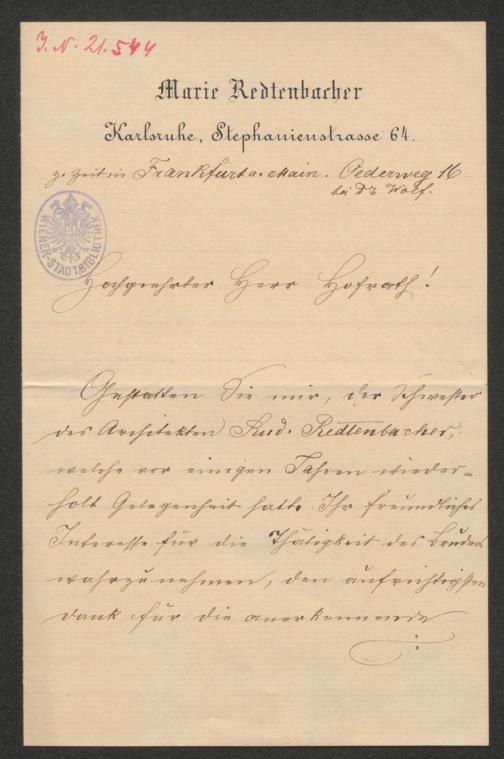 J. N. 21.544
Marie Redtenbacher
Karlsruhe, Stephanienstrasse 64.
z. Zeit in Frankfurt a. Main. Oederweg 16
bei Dr. Wolf.
WIENER-STADTBIBLIOTHEK
Hochgeehrter Herr Hofrath!
Gestatten Sie mir, der Schwester
des Architekten Rud. Redtenbacher,
welche vor einigen Jahren wieder=
holt Gelegenheit hatte Ihr freundliches
Interesse für die Thätigkeit des Bruders
wahrzunehmen, den aufrichtigsten
Dank für die anerkennende